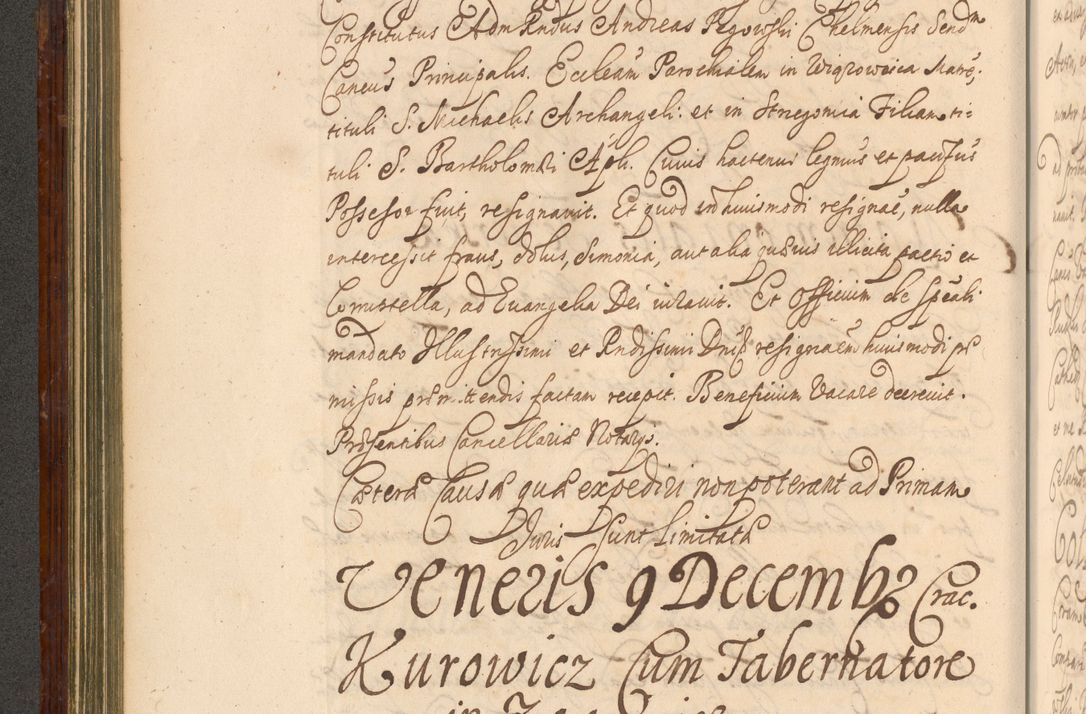 Constitutus Adm Rndus Andreas Pęgowski Chelmensis Send
Caneus Principalis. Ecclam Parochialem in Wigrowsica Matre,
tituli S. Michaelis Archangeli: et in Stregomia Filiam ti-
tuli S. Bartholomæi Apli. Cuius hactenus legmus et pacifus
Possessor fuit, resignavit. Et quod in huiusmodi resignae, nulla
intercessit fraus, dolus, Simonia, aut alia quævis illicita pactio et
Corruttella, ad Euangelia Dei iuravit. Et Officium de speali
mandato Illustrissimi et Rndissimi Dni resignaem huiusmodi præ
missis præmittendis factam recepit. Beneficium Vacare decrevit.
Præsentibus Cancellariæ Notarys.
Cæteræ Causæ quæ expediri non poterant ad Primam
Juris Sunt limitatæ
Veneris 9 Decembr Crac.
Kurowicz Cum Tabernatore